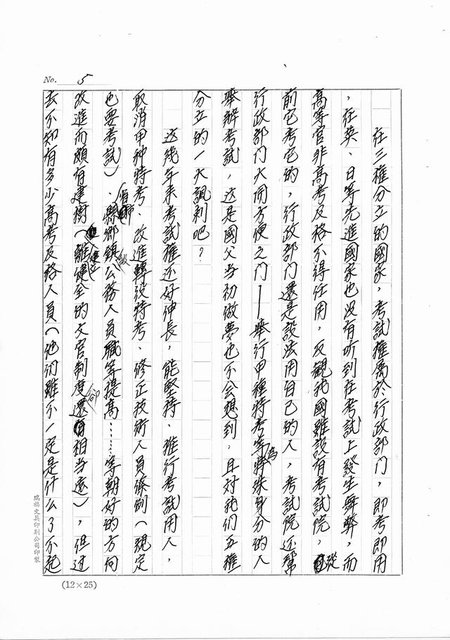 No. 5
在三權分立的國家,考試權屬於行政部門,即考即用
,在英、日等先進國家也沒有听到在考試上發生舞弊,而
高等官非高考及格不得任用,反觀我國雖設有考試院,從
前它考它的,行政部門還是設法用自己的人,考試院还幫
行政部門大開方便之门——舉行甲種特考等為特殊身分的人
舉辦考試,这是國父当初做夢也不会想到,且对我们五權
分立的一大諷刺吧?
这幾年來考試權还好伸長,能堅持、推行考試用人,
取消甲种特考、改進轉役特考、修正技術人員條例(規定
也要考試)、縣鄉鎮公務人員職等提高……等朝好的方向
改進而頗有建樹(離健全的文官制度還相当遠),但过
去不知有多少高考及格人員(他们雖不一定是什么了不起
(12×25)